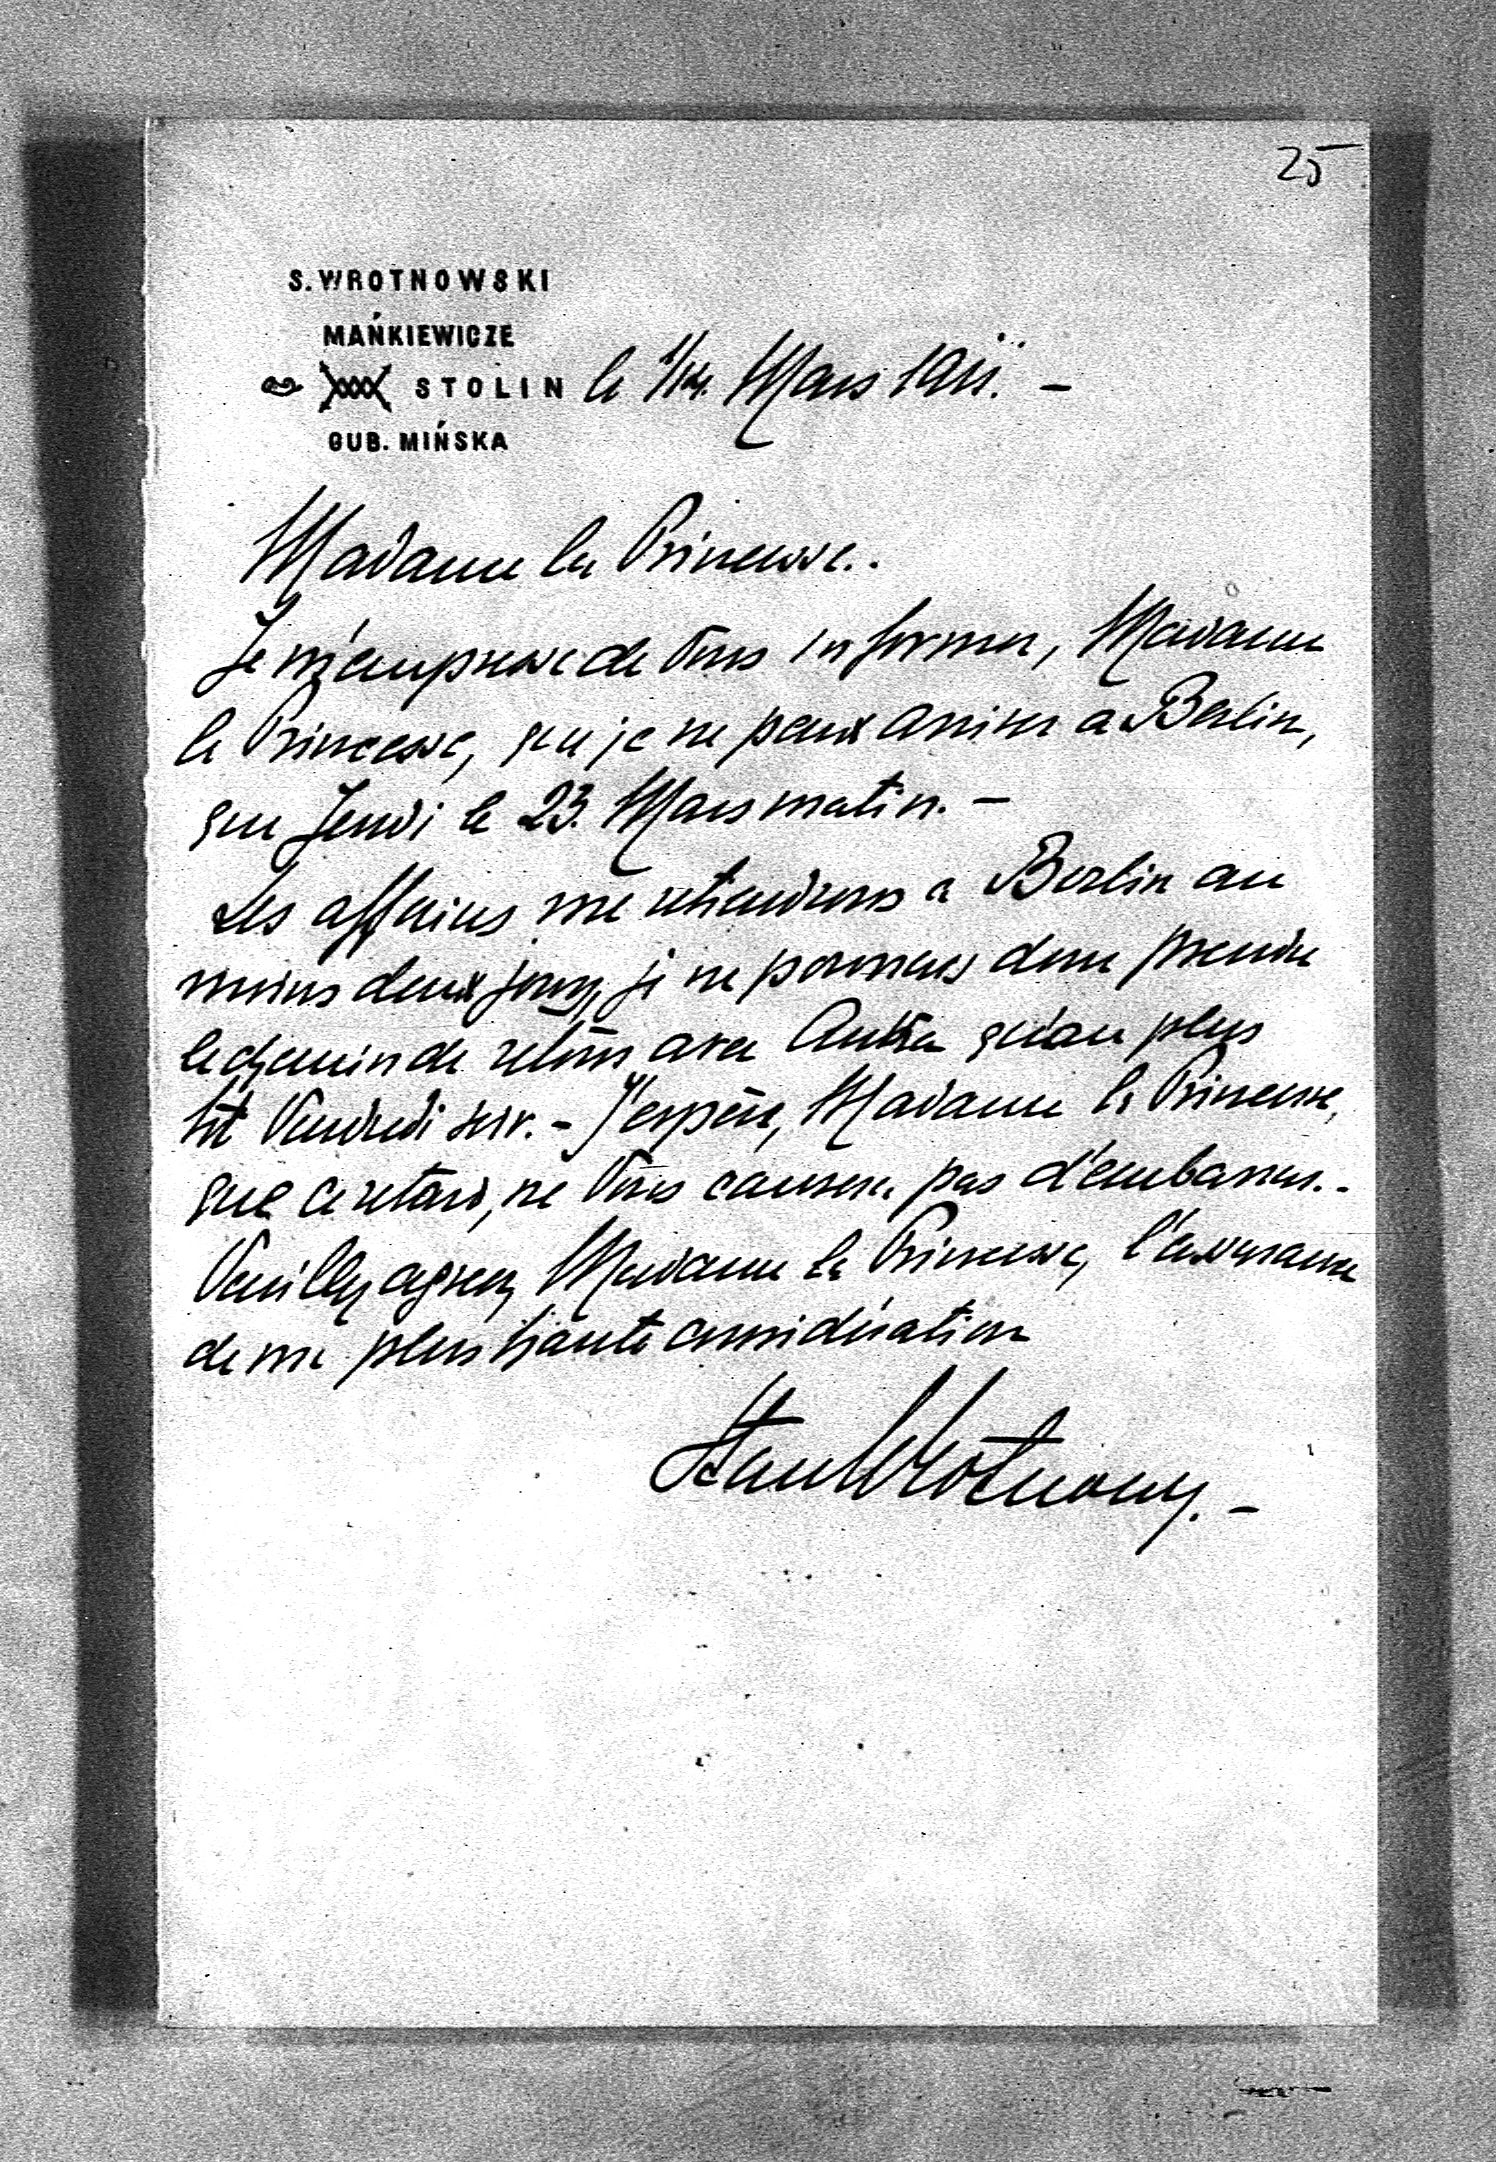 25
S. WROTNOWSKI
MAŃKIEWICZE
STOLIN le 1/14. Mars 1911. -
GUB. MIŃSKA
Madame la Princesse..
Je m'empresse de Vous informer, Madame
la Princesse, que je ne peux arriver a Berlin,
que Jeudi le 23. Mars matin. -
Les affaires me retiendrons a Berlin au
moins deux jours, je ne pourrais donc prendre
le chemin de retour avec qu'au plus
tôt Vendredi soir. - J'espère, Madame la Princesse,
que ce retard, ne Vous causera pas d'embarras. -
Veuillez agréez, Madame la Princesse, l'assurance
de ma plus haute considération
Stan Wrotnowsky. -